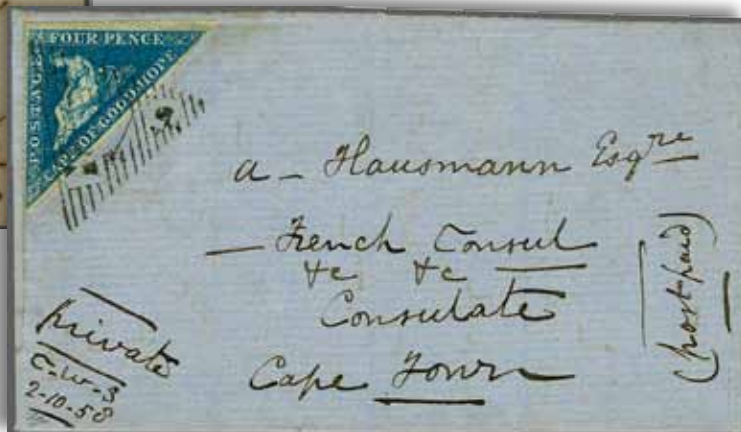 FOUR PENCE
POSTAGE
CAPE OF GOOD HOPE
a - Hausmann Esqre
- French Consul
&c &c
Consulate
Cape Town
(post paid)
private
C-W-S
2-10-58